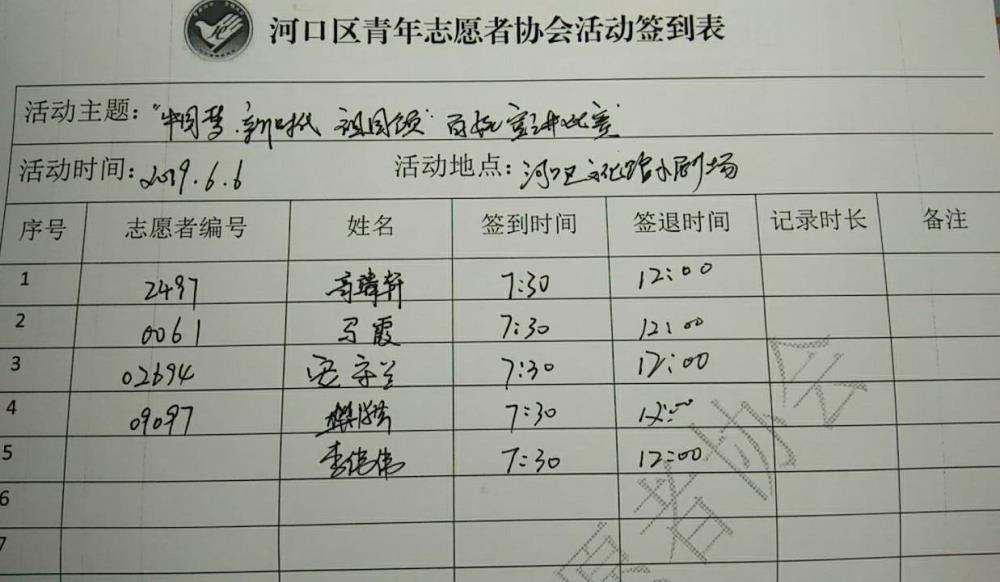 河口区青年志愿者协会活动签到表
活动主题:"中国梦·新时代 祖国颂"百姓宣讲比赛"
活动时间:2019.6.6 活动地点:河口区文化馆小剧场
序号 志愿者编号 姓名 签到时间 签退时间 记录时长 备注
1 2497 高 轩 7:30 12:00
2 0061 马霞 7:30 12:00
3 02694 7:30 12:00
4 09097 7:30 12:00
5 李伟伟 7:30 12:00
6
7
愿者协会